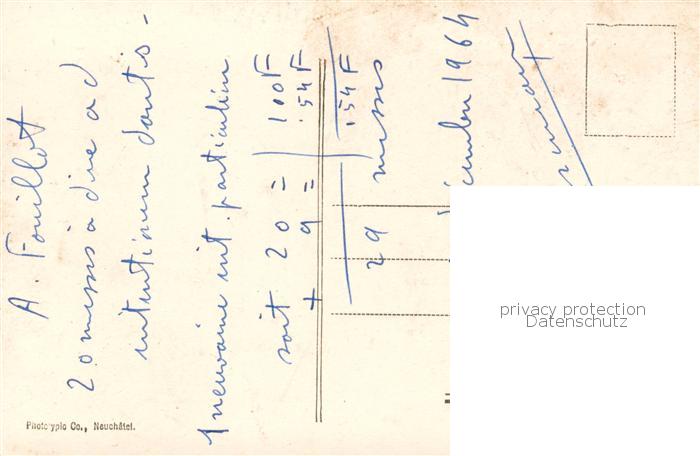 A. Fouillot
20 messes à dire ad
intentionem dantis -
1 neuvaine int. particulière
soit 20 = 100 F
+ 9 = 54 F
154 F
29 messes
1964
Phototypie Co., Neuchâtel.
privacy protection
Datenschutz